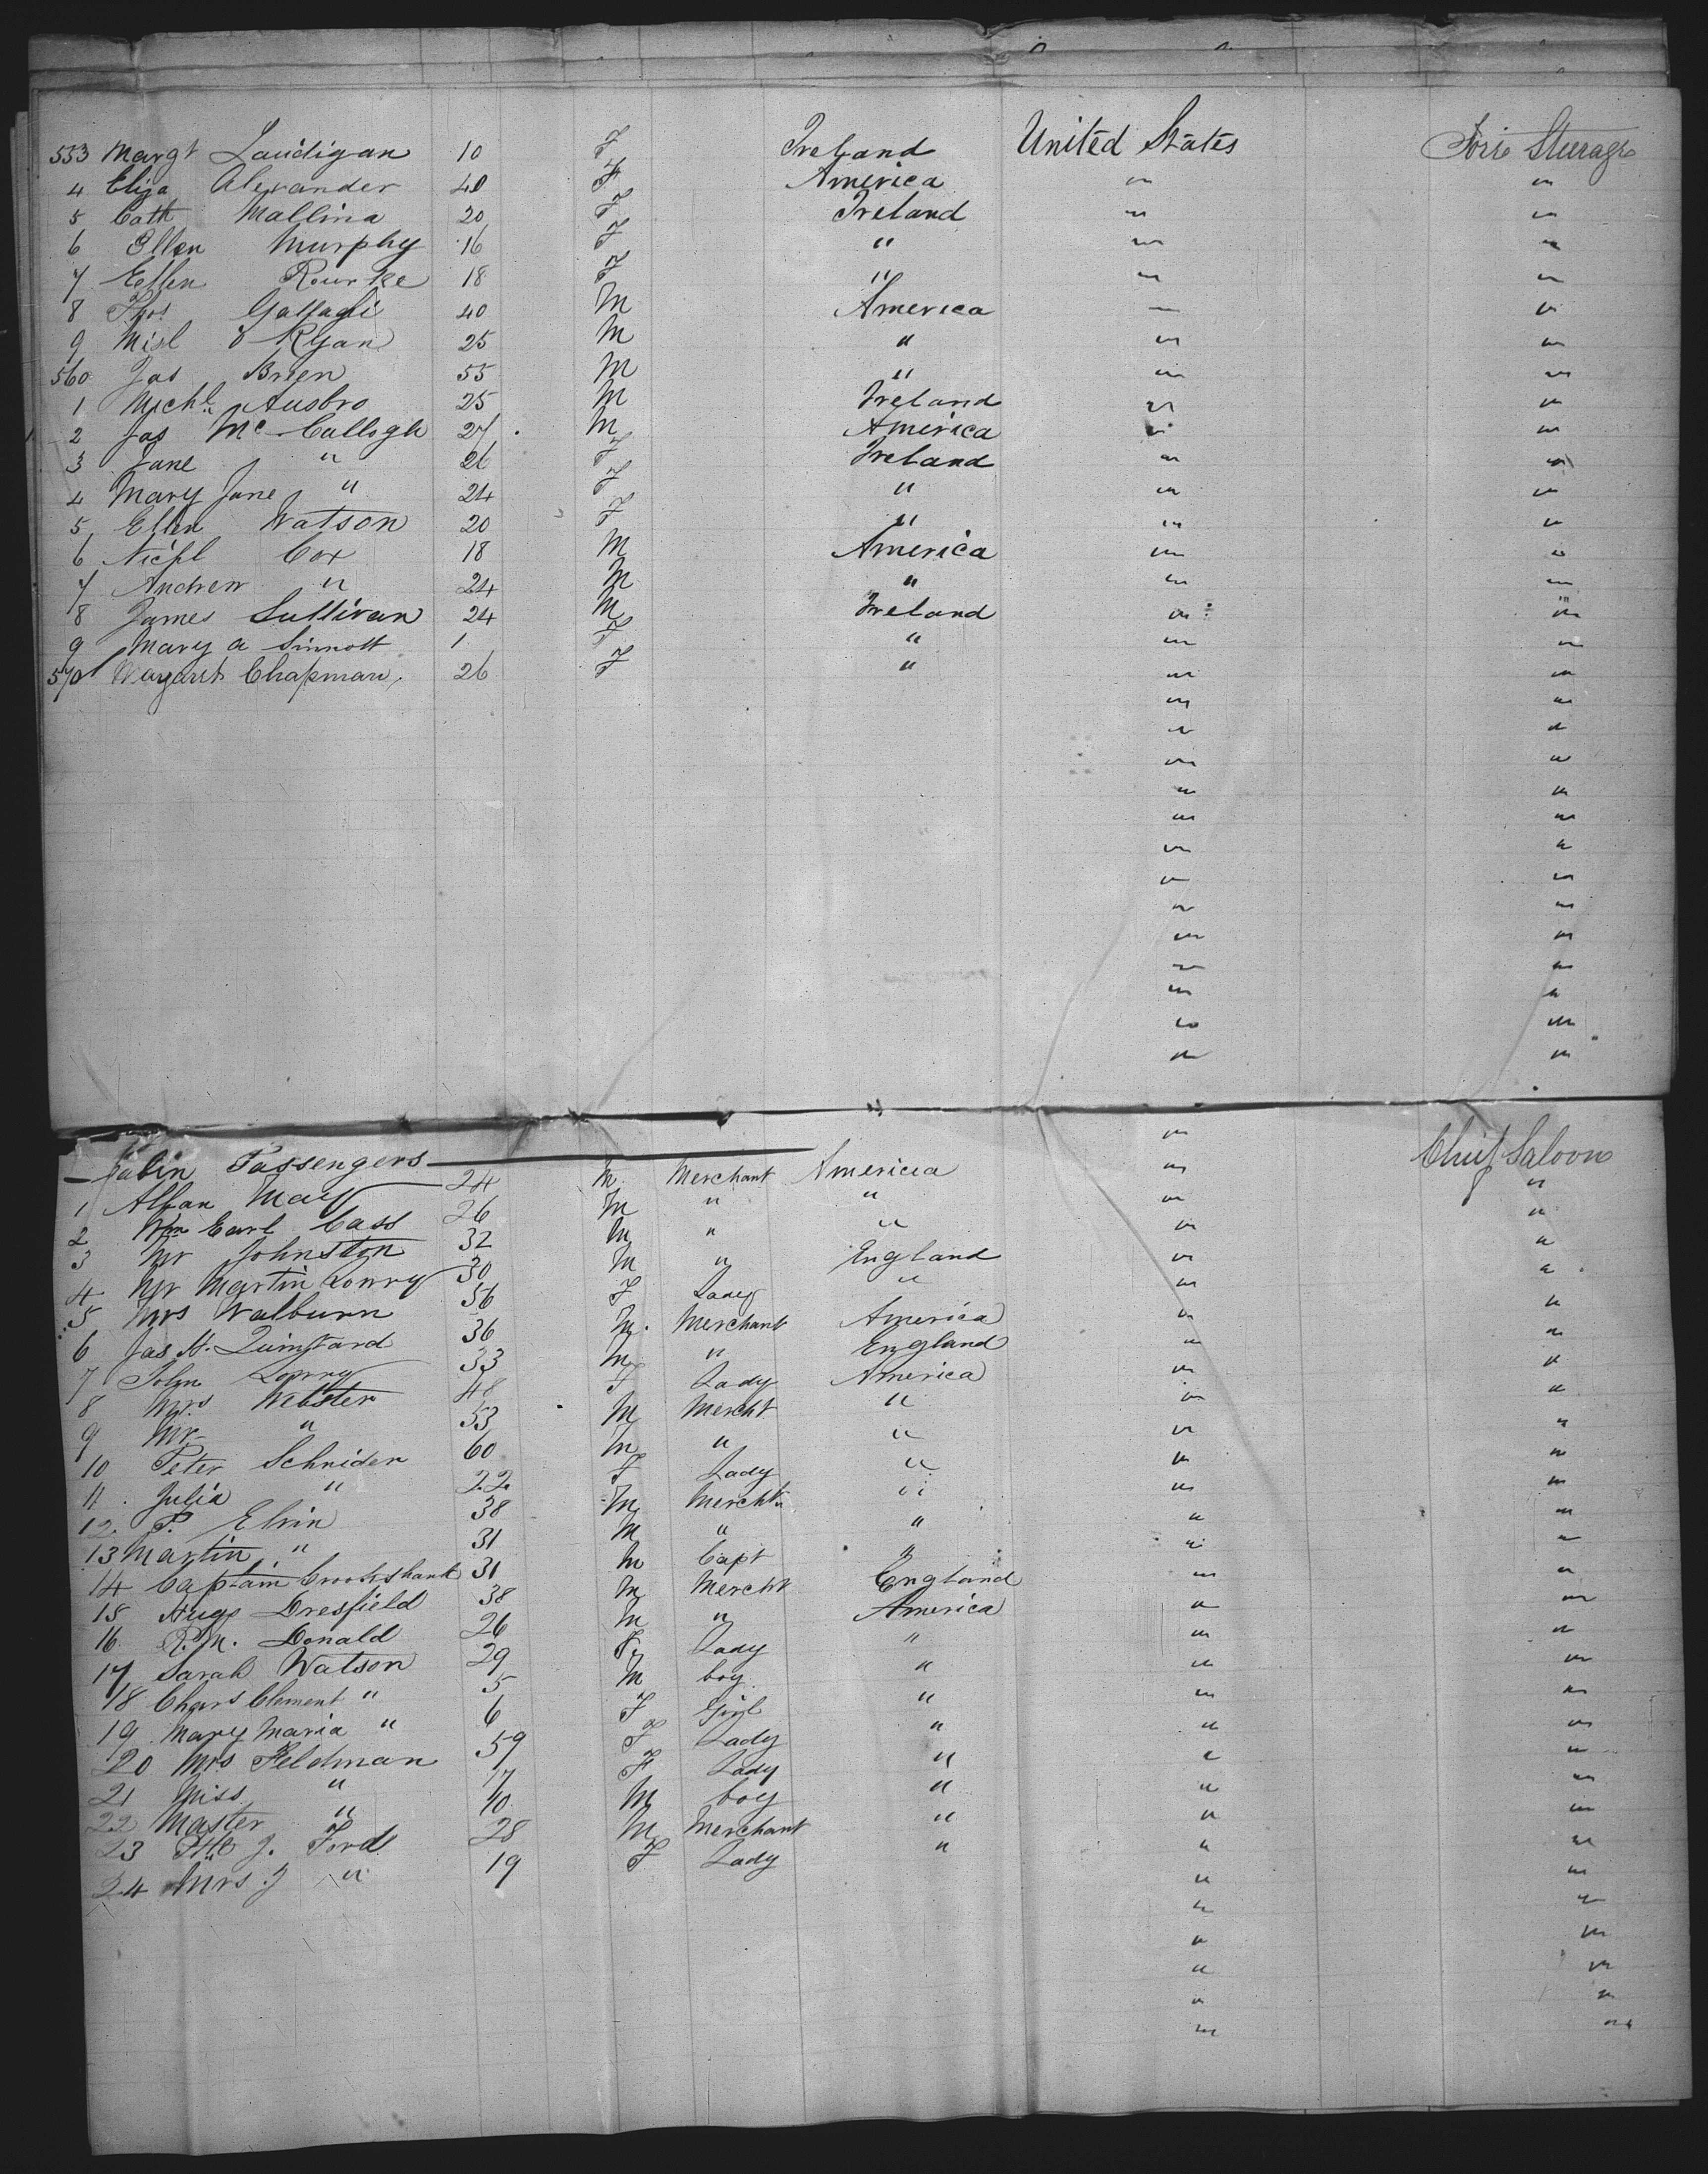 553 Margt Laudigan 10 F Ireland United States Fore Steerage
4 Eliza Alexander 40 F America " "
5 Cath Mallina 20 F Ireland " "
6 Ellen Murphy 16 F " " "
7 Ellen Rourke 18 F " " "
8 Thos 40 M America " "
9 O Ryan 25 M " " "
560 Jas Brien 55 M " " "
1 Michl Ausbro 25 M Ireland " "
2 Jas Mc Callogh 27 M America " "
3 Jane " 26 F Ireland " "
4 Mary Jane " 24 F " " "
5 Ellen Watson 20 F " " "
6 Cox 18 M America " "
7 Andrew " 24 M " " "
8 James Sullivan 24 M Ireland " "
9 Mary a Sinnott 1 F " " "
570 Margaret Chapman 26 F " " "
" "
" "
" "
" "
" "
" "
" "
" "
" "
" "
" "
" "
" "
Cabin Passengers "
1 Allan May 24 M Merchant America " Chief Saloon
2 Wm Earl Cass 26 M " " " "
3 Mr Johnston 32 M " " " "
4 Mr Martin Lonry 30 M " England " "
5 Mrs Walburn 56 F Lady " " "
6 Jas H. Quintard 36 M Merchant America " "
7 John Lonry 33 M " England " "
8 Mrs Webster 48 F Lady America " "
9 Mr " 53 M Mercht " " "
10 Peter Schnider 60 M " " " "
11 Julia " 22 F Lady " " "
12 P. Elvin 38 M Mercht " " "
13 Martin " 31 M " " " "
14 Captain Crookshank 31 M Capt " " "
15 Hugo Dresfield 38 M Mercht England " "
16 R. M. Donald 26 M " America " "
17 Sarah Watson 29 F Lady " " "
18 Chars Clement " 5 M boy " " "
19 Mary Maria " 6 F Girl " " "
20 Mrs Feldman 59 F Lady " " "
21 Miss " 17 F Lady " " "
22 Master " 10 M boy " " "
23 J. Ford 28 M Merchant " " "
24 Mrs J " 19 F Lady " " "
" "
" "
" "
" "
" "
" "